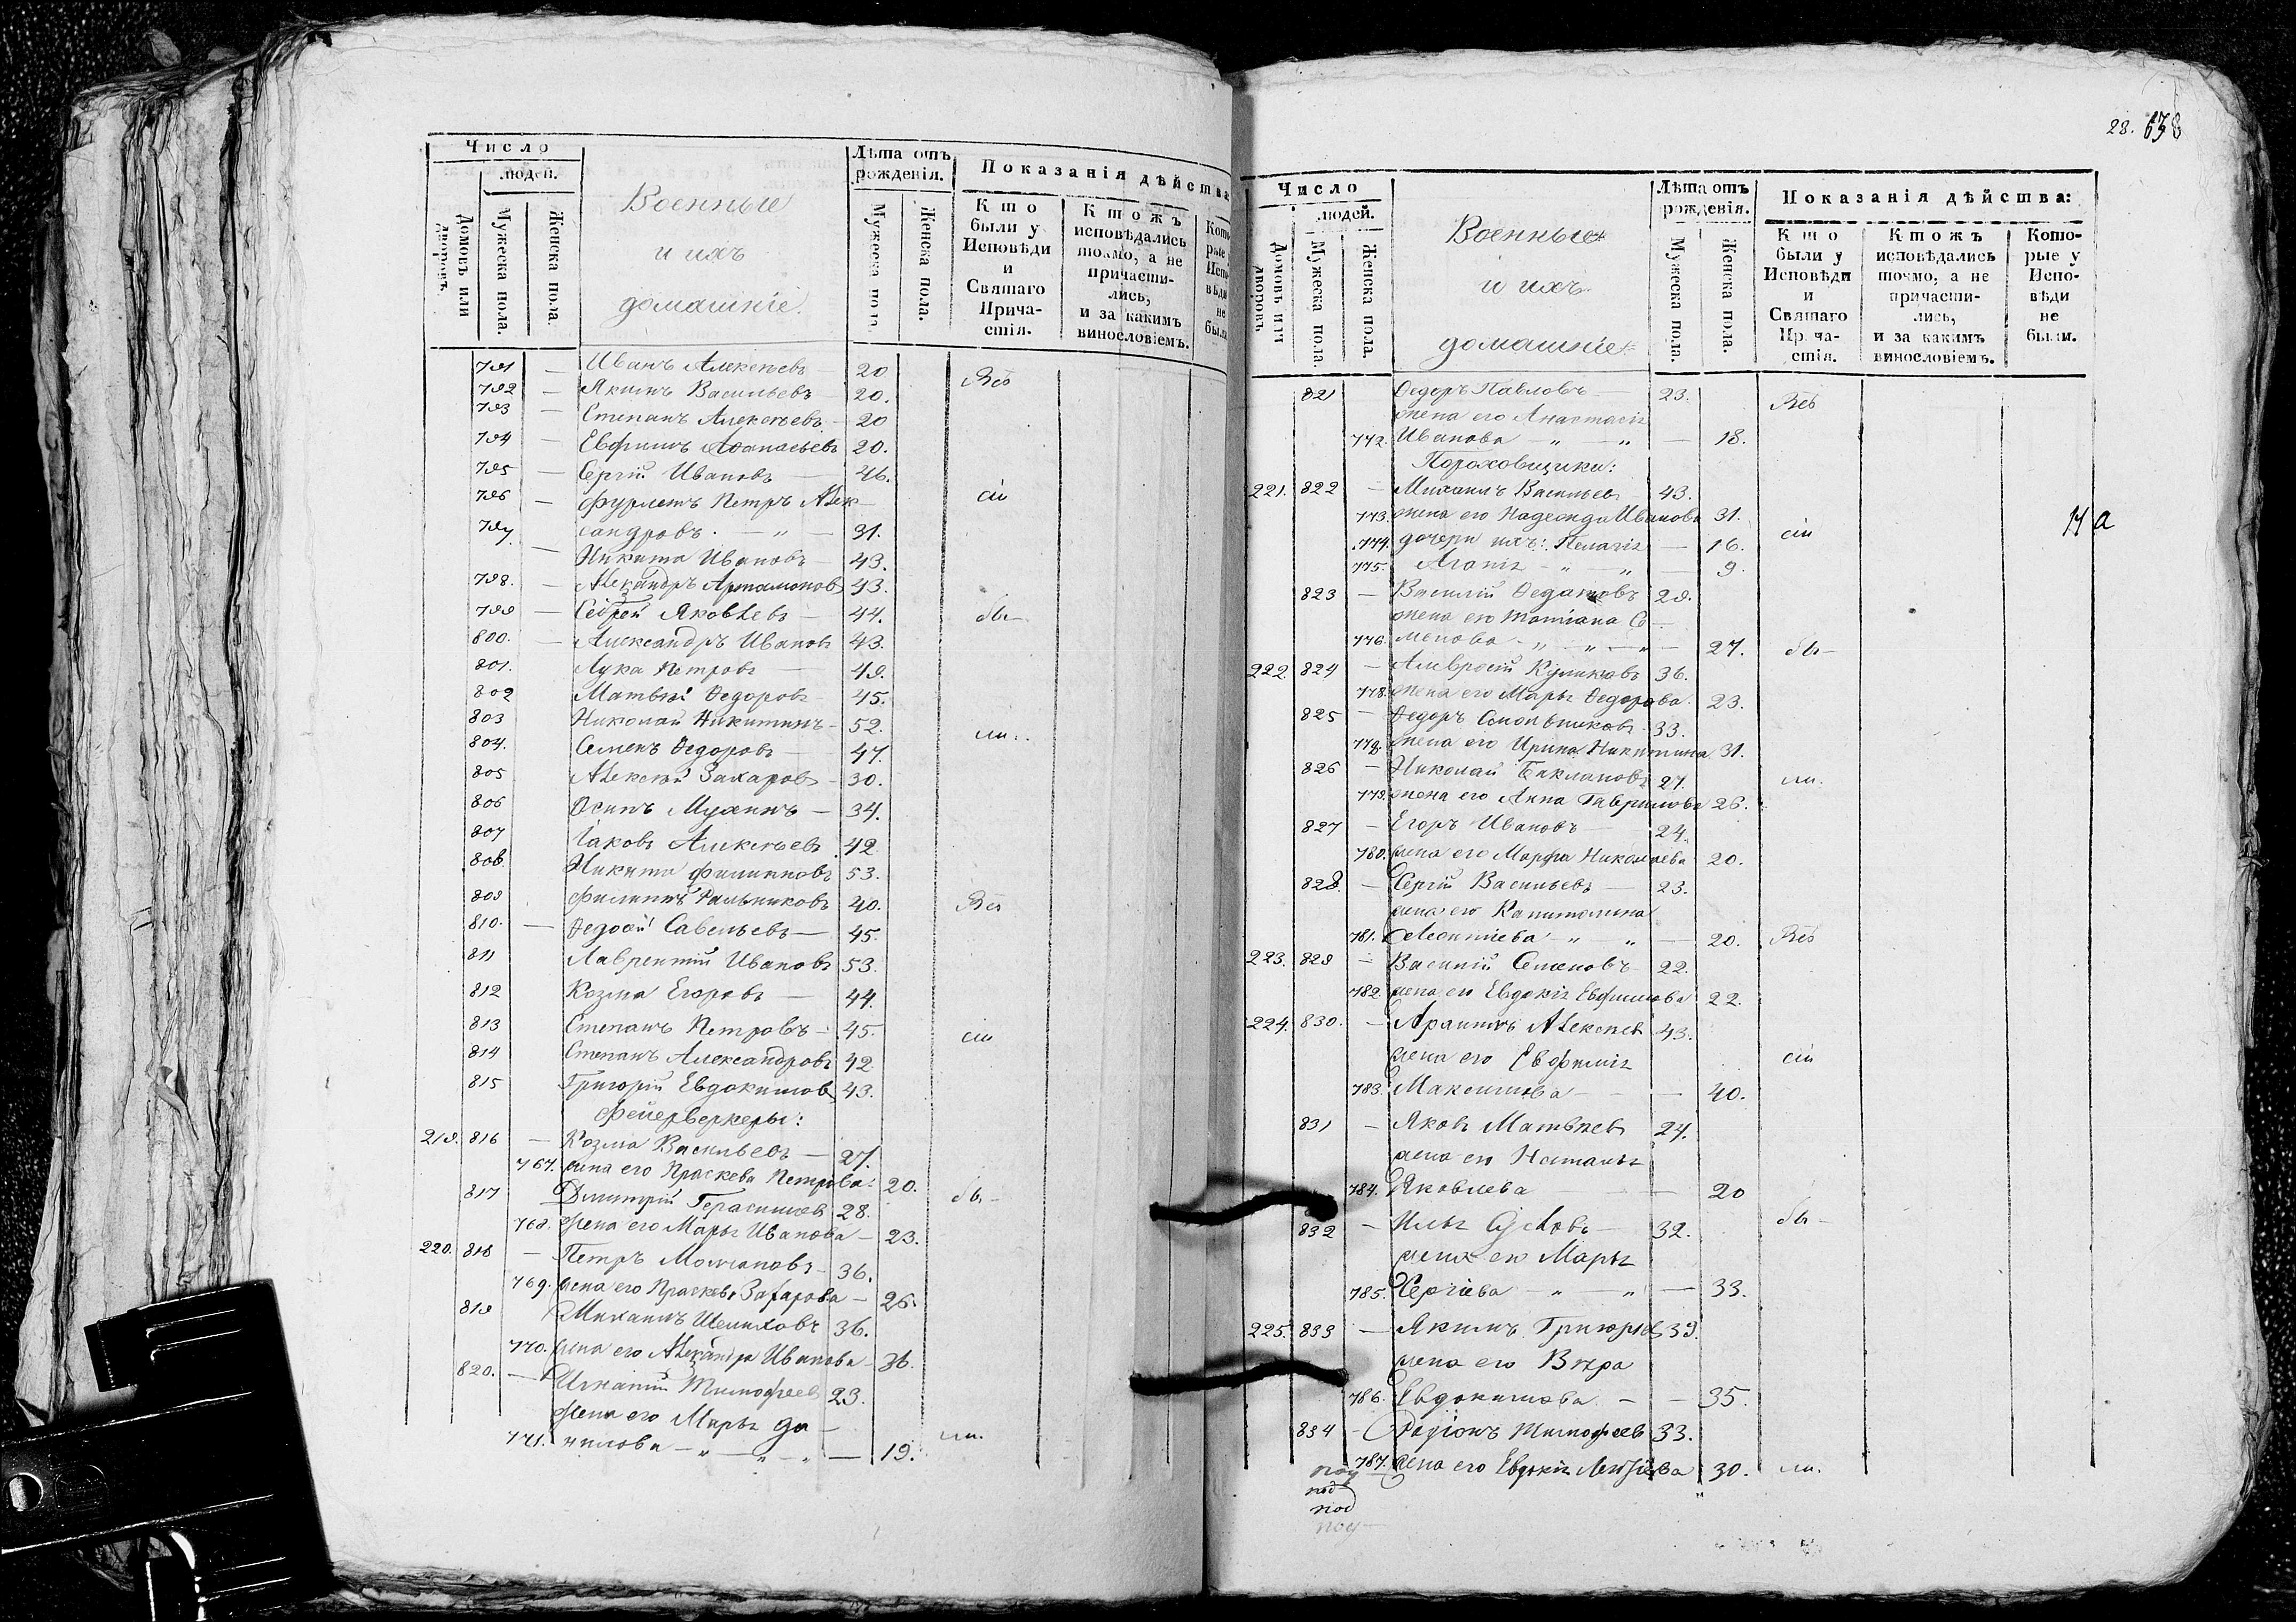 Число
людей.
Домовъ или дворовъ.
Мужеска пола.
Женска пола.
Военные
и ихъ
домашніе.
Лѣта отъ рожденія.
Мужеска пола.
Женска пола.
Показанія дѣйства
Кто были у Исповѣди и Святаго Причастія.
Ктожъ исповѣдались токмо, а не причастились, и за какимъ винословіемъ.
791 — Иванъ Алексѣевъ 20 Всѣ
792 — Якимъ Васильевъ 20.
793 — Степанъ Алексѣевъ 20
794 — Евфимъ Аѳанасьевъ 20.
795 — Сергій Ивановъ 46.
796 — Фурлетъ Петръ Алек- сіи
797 сандровъ. — „ — 31.
— Никита Ивановъ 43.
798. — Александръ Артамоновъ 43.
799 — Сергѣй Яковлевъ — 44. бы-
800. — Александръ Ивановъ 43.
801. Лука Петровъ 49.
802 Матвѣй Ѳедоровъ 45.
803 Николай Никитинъ - 52. ли.
804. Семенъ Ѳедоровъ 47.
805 Алексѣй Захаровъ - 30.
806 Осипъ Мухинъ — 34.
807 Іаковъ Алексѣевъ 42
808 Никита Филипповъ 53.
809 Филиппъ 40. Всѣ
810. — Савельевъ — 45.
811 Лаврентій Ивановъ 53.
812 Козма Егоровъ — 44.
813 Степанъ Петровъ - 45. сіи
814 Степанъ Александровъ 42
815 Григорій Евдокимовъ 43.
Фейерверкеры:
219. 816 — Козма Васильевъ — 27.
767. жена его Праскева Петрова 20.
817 Димитрій Герасимовъ 28. бы-
768. жена его Марья Иванова — 23.
220. 818 — Петръ Молчановъ 36.
769. жена его Праскевья Захарова — 26.
819 Михаилъ Шелиховъ 36.
770. жена его Александра Иванова 36.
820. — Игнатій Тимофеевъ 23.
жена его Марья Да-
771. нилова — „ — „ — 19. ли.
28. 638
Число
людей.
Домовъ или дворовъ.
Мужеска пола.
Женска пола.
Военные
и ихъ
домашніе
Лѣта отъ рожденія.
Мужеска пола.
Женска пола.
Показанія дѣйства:
Кто были у Исповѣди и Святаго Причастія.
Ктожъ исповѣдались токмо, а не причастились, и за какимъ винословіемъ.
Которые у Исповѣди не были.
821 Ѳедоръ Павловъ 23. Всѣ
жена его Анастасія
772. Иванова „ — „ — 18.
Пороховщики:
221. 822 — Михаилъ Васильевъ 43.
773. жена его Надежда Иванова 31.
774. дочери ихъ: Пелагія — 16. сіи
775. Агапія - „ — „ — 9.
823 — Василій 29.
жена его Татіана Се-
776. менова 27. бы-
222. 824 — Амвросій Куликовъ 36.
778. жена его Марья Ѳедорова 23.
825 — Ѳедоръ 33.
778. жена его Ирина Никитина 31.
826 — Николай Баклановъ 27. ли.
779. жена его Анна Гаврилова 26.
827 — Егоръ Ивановъ 24.
780. жена его Марфа Николаева 20.
828. — Сергій Васильевъ — 23.
жена его Капитолина
781. Леонтіева „ — „ — 20. Всѣ
223. 829 — Василій Семеновъ 22.
782. жена его Евдокія Евфимова 22.
224. 830. — Алексѣевъ 43.
жена его Евфимія сіи
783. Максимова — — 40.
831 — Яковъ Матвѣевъ 24.
жена его Наталья
784. Яковлева — 20
832 — Илья 32. бы-
жена его Марья
785. Сергіева „ — „ — 33.
225. 833 — Якимъ Григорьевъ 39.
жена его Вѣра
786. Евдокимова - — 35.
834 - Родіонъ Тимофеевъ 33.
787. жена его Евдокія 30. ли.
под
под